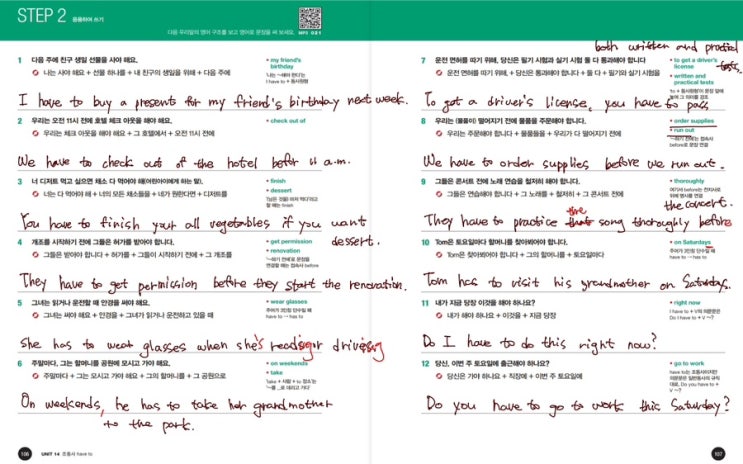 STEP 2 응용하여 쓰기
다음 우리말의 영어 구조를 보고 영어로 문장을 써 보세요.
MP3 021
1 다음 주에 친구 생일 선물을 사야 해요.
나는 사야 해요 + 선물 하나를 + 내 친구의 생일을 위해 + 다음 주에
• my friend's birthday
'나는 ~해야 한다'는
I have to + 동사원형
I have to buy a present for my friend's birthday next week.
2 우리는 오전 11시 전에 호텔 체크 아웃을 해야 해요.
우리는 체크 아웃을 해야 해요 + 그 호텔에서 + 오전 11시 전에
• check out of
We have to check out of the hotel before 11 a.m.
3 너 디저트 먹고 싶으면 채소 다 먹어야 해(어린아이에게 하는 말).
너는 다 먹어야 해 + 너의 모든 채소들을 + 네가 원한다면 + 디저트를
• finish
• dessert
You have to finish your all vegetables if you want
dessert.
4 개조를 시작하기 전에 그들은 허가를 받아야 합니다.
그들은 받아야 합니다 + 허가를 + 그들이 시작하기 전에 + 그 개조를
• get permission
• renovation
They have to get permission before they start the renovation.
5 그녀는 읽거나 운전할 때 안경을 써야 해요.
그녀는 써야 해요 + 안경을 + 그녀가 읽거나 운전하고 있을 때
• wear glasses
주어가 3인칭 단수일 때
have to → has to
she has to wear glasses when she's reading or driving
6 주말마다, 그는 할머니를 공원에 모시고 가야 해요.
주말마다 + 그는 모시고 가야 해요 + 그의 할머니를 + 그 공원으로
• on weekends
• take
On weekends, he has to take her grandmother
to the park.
106 UNIT 14 조동사 have to
both written and
tests.
7 운전 면허를 따기 위해, 당신은 필기 시험과 실기 시험 둘 다 통과해야 합니다
운전 면허를 따기 위해, + 당신은 통과해야 합니다 + 둘 다 + 필기와 실기 시험을
• to get a driver's license
• written and practical tests
To get a driver's license, you have to pass
8 우리는 (물품이) 떨어지기 전에 물품을 주문해야 합니다.
우리는 주문해야 합니다 + 물품들을 + 우리가 다 떨어지기 전에
• order supplies
• run out
We have to order supplies before we run out.
9 그들은 콘서트 전에 노래 연습을 철저히 해야 합니다.
그들은 연습해야 합니다 + 그 노래를 + 철저히 + 그 콘서트 전에
• thoroughly
the concert.
They have to practice the song thoroughly before
10 Tom은 토요일마다 할머니를 찾아봬야 합니다.
Tom은 찾아봬야 합니다 + 그의 할머니를 + 토요일마다
• on Saturdays
주어가 3인칭 단수일 때
have to → has to
Tom has to visit his grandmother on Saturdays.
11 내가 지금 당장 이것을 해야 하나요?
내가 해야 하나요 + 이것을 + 지금 당장
• right now
I have to + V의 의문문은
Do I have to + V ~?
Do I have to do this right now?
12 당신, 이번 주 토요일에 출근해야 하나요?
당신은 가야 하나요 + 직장에 + 이번 주 토요일에
• go to work
Do you have to go to work this Saturday?
107